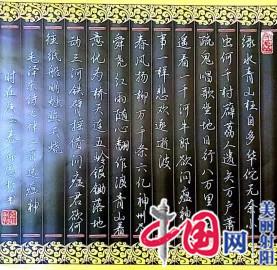 绿水青山枉自多华佗无奈
虫何千村薜荔人遗矢万户萧
疏鬼唱歌坐地日行八万里
遥看一千河牛郎欲问瘟神
事一样悲欢逐逝波
春风杨柳万千条六亿神州
舜尧红雨随心翻作浪青山着
意化为桥天连五岭银锄落地
动三河铁臂摇借问瘟君欲何
往纸船明烛照天烧
毛泽东诗七律二首送瘟神
中国
美丽射阳